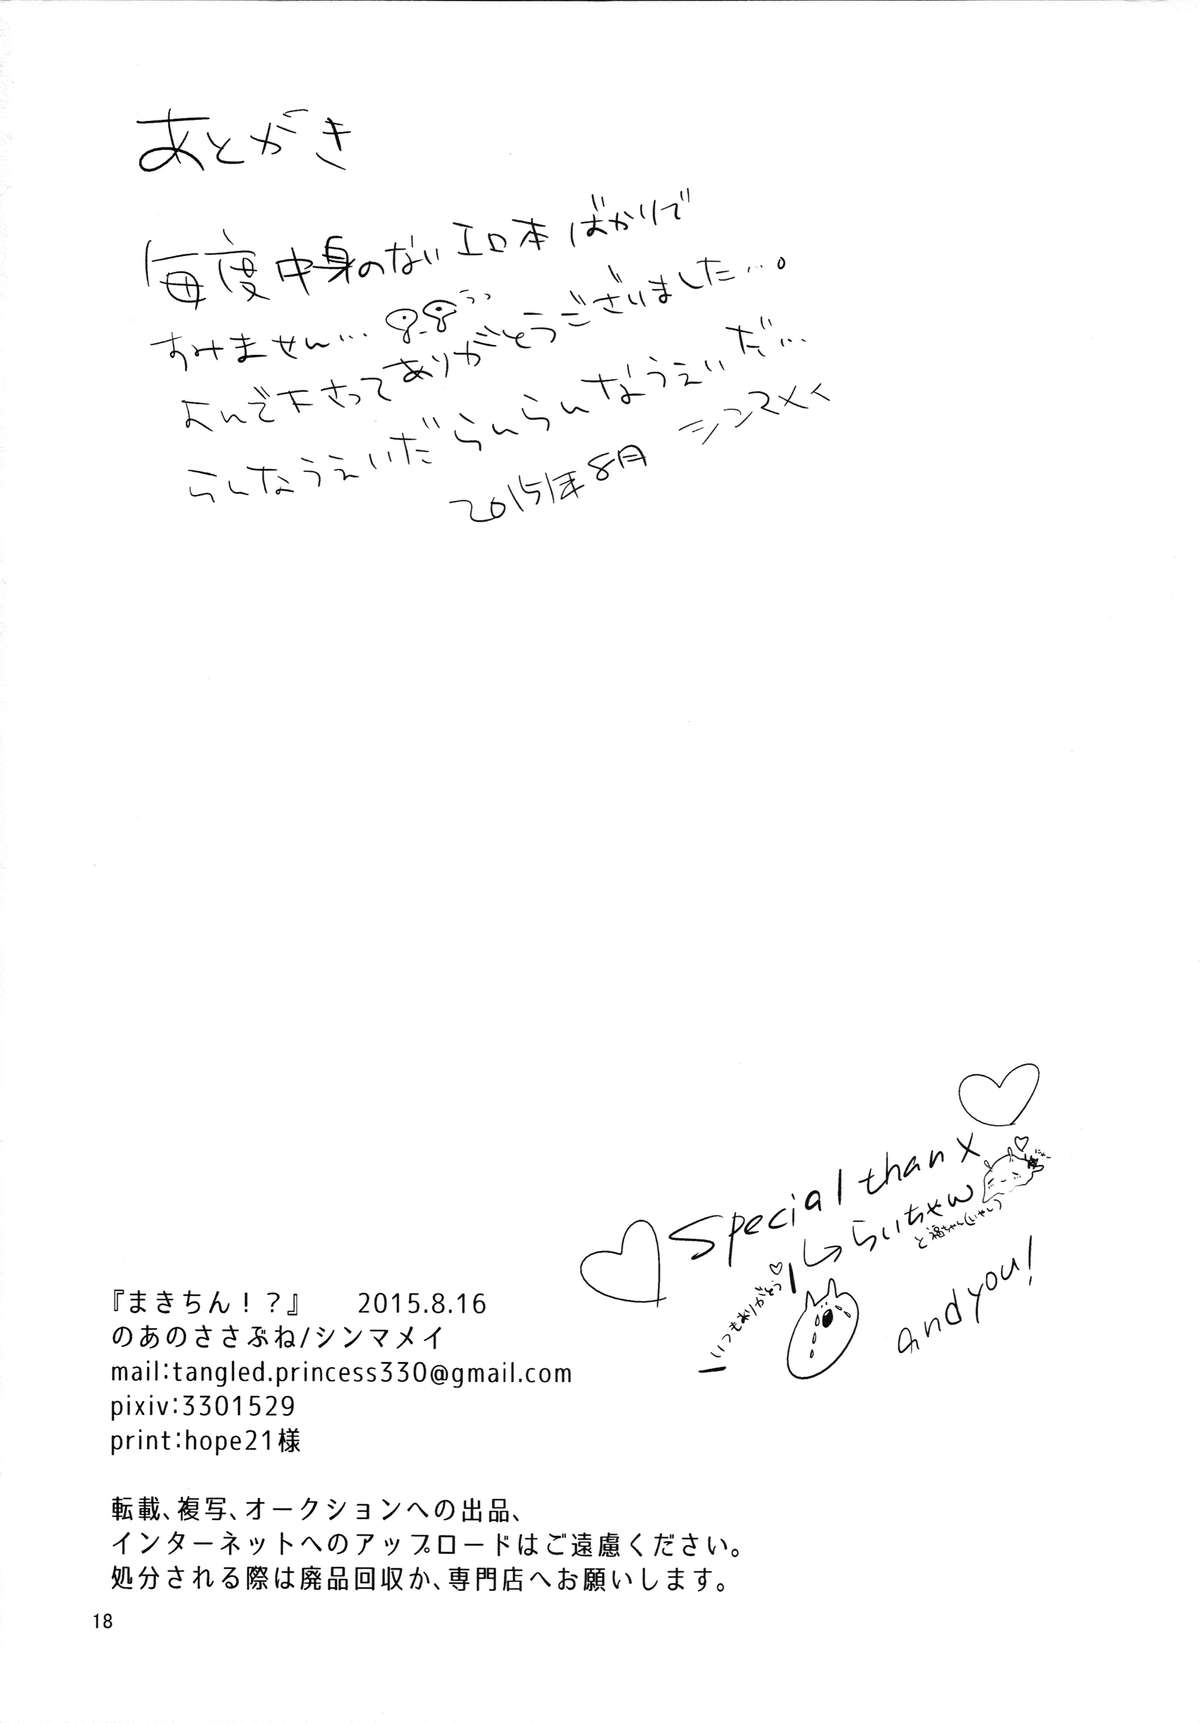 あとがき
毎度中身のないエロ本ばかりで
すみません…
よんで下さってありがとうございました…。
らんなうぇいだらんらんなうぇいだ…
2015年8月 シンマメイ
Special thanx
らいちゃん
いつもありがとう♡
and you!
『まきちん！？』 2015.8.16
のあのささぶね/シンマメイ
mail:tangled.princess330@gmail.com
pixiv:3301529
print:hope21様
転載、複写、オークションへの出品、
インターネットへのアップロードはご遠慮ください。
処分される際は廃品回収か、専門店へお願いします。
18